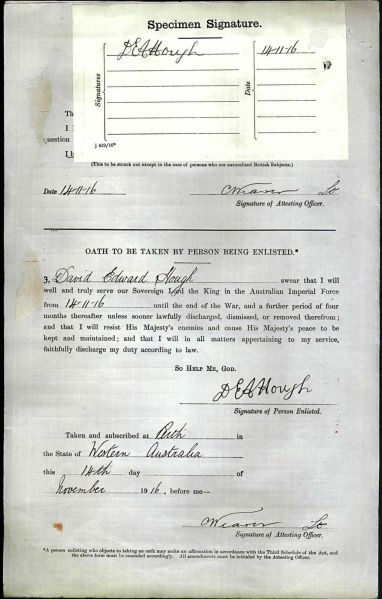 Specimen Signature.
Signatures
D E A Hough
Date
14-11-16
§ 429/16*
Th
I
uestion
I h
(This to be struck out except in the case of persons who are naturalized British Subjects.)
Date 14-11-16
C Weaver Lt
Signature of Attesting Officer.
OATH TO BE TAKEN BY PERSON BEING ENLISTED.*
I, David Edward Hough swear that I will
well and truly serve our Sovereign Lord the King in the Australian Imperial Force
from 14-11-16 until the end of the War, and a further period of four
months thereafter unless sooner lawfully discharged, dismissed, or removed therefrom;
and that I will resist His Majesty's enemies and cause His Majesty's peace to be
kept and maintained; and that I will in all matters appertaining to my service,
faithfully discharge my duty according to law.
SO HELP ME, GOD.
D E A Hough
Signature of Person Enlisted.
Taken and subscribed at Perth in
the State of Western Australia
this 14th day of
November 1916, before me—
C Weaver Lt
Signature of Attesting Officer.
*A person enlisting who objects to taking an oath may make an affirmation in accordance with the Third Schedule of the Act, and
the above form must be amended accordingly. All amendments must be initialed by the Attesting Officer.